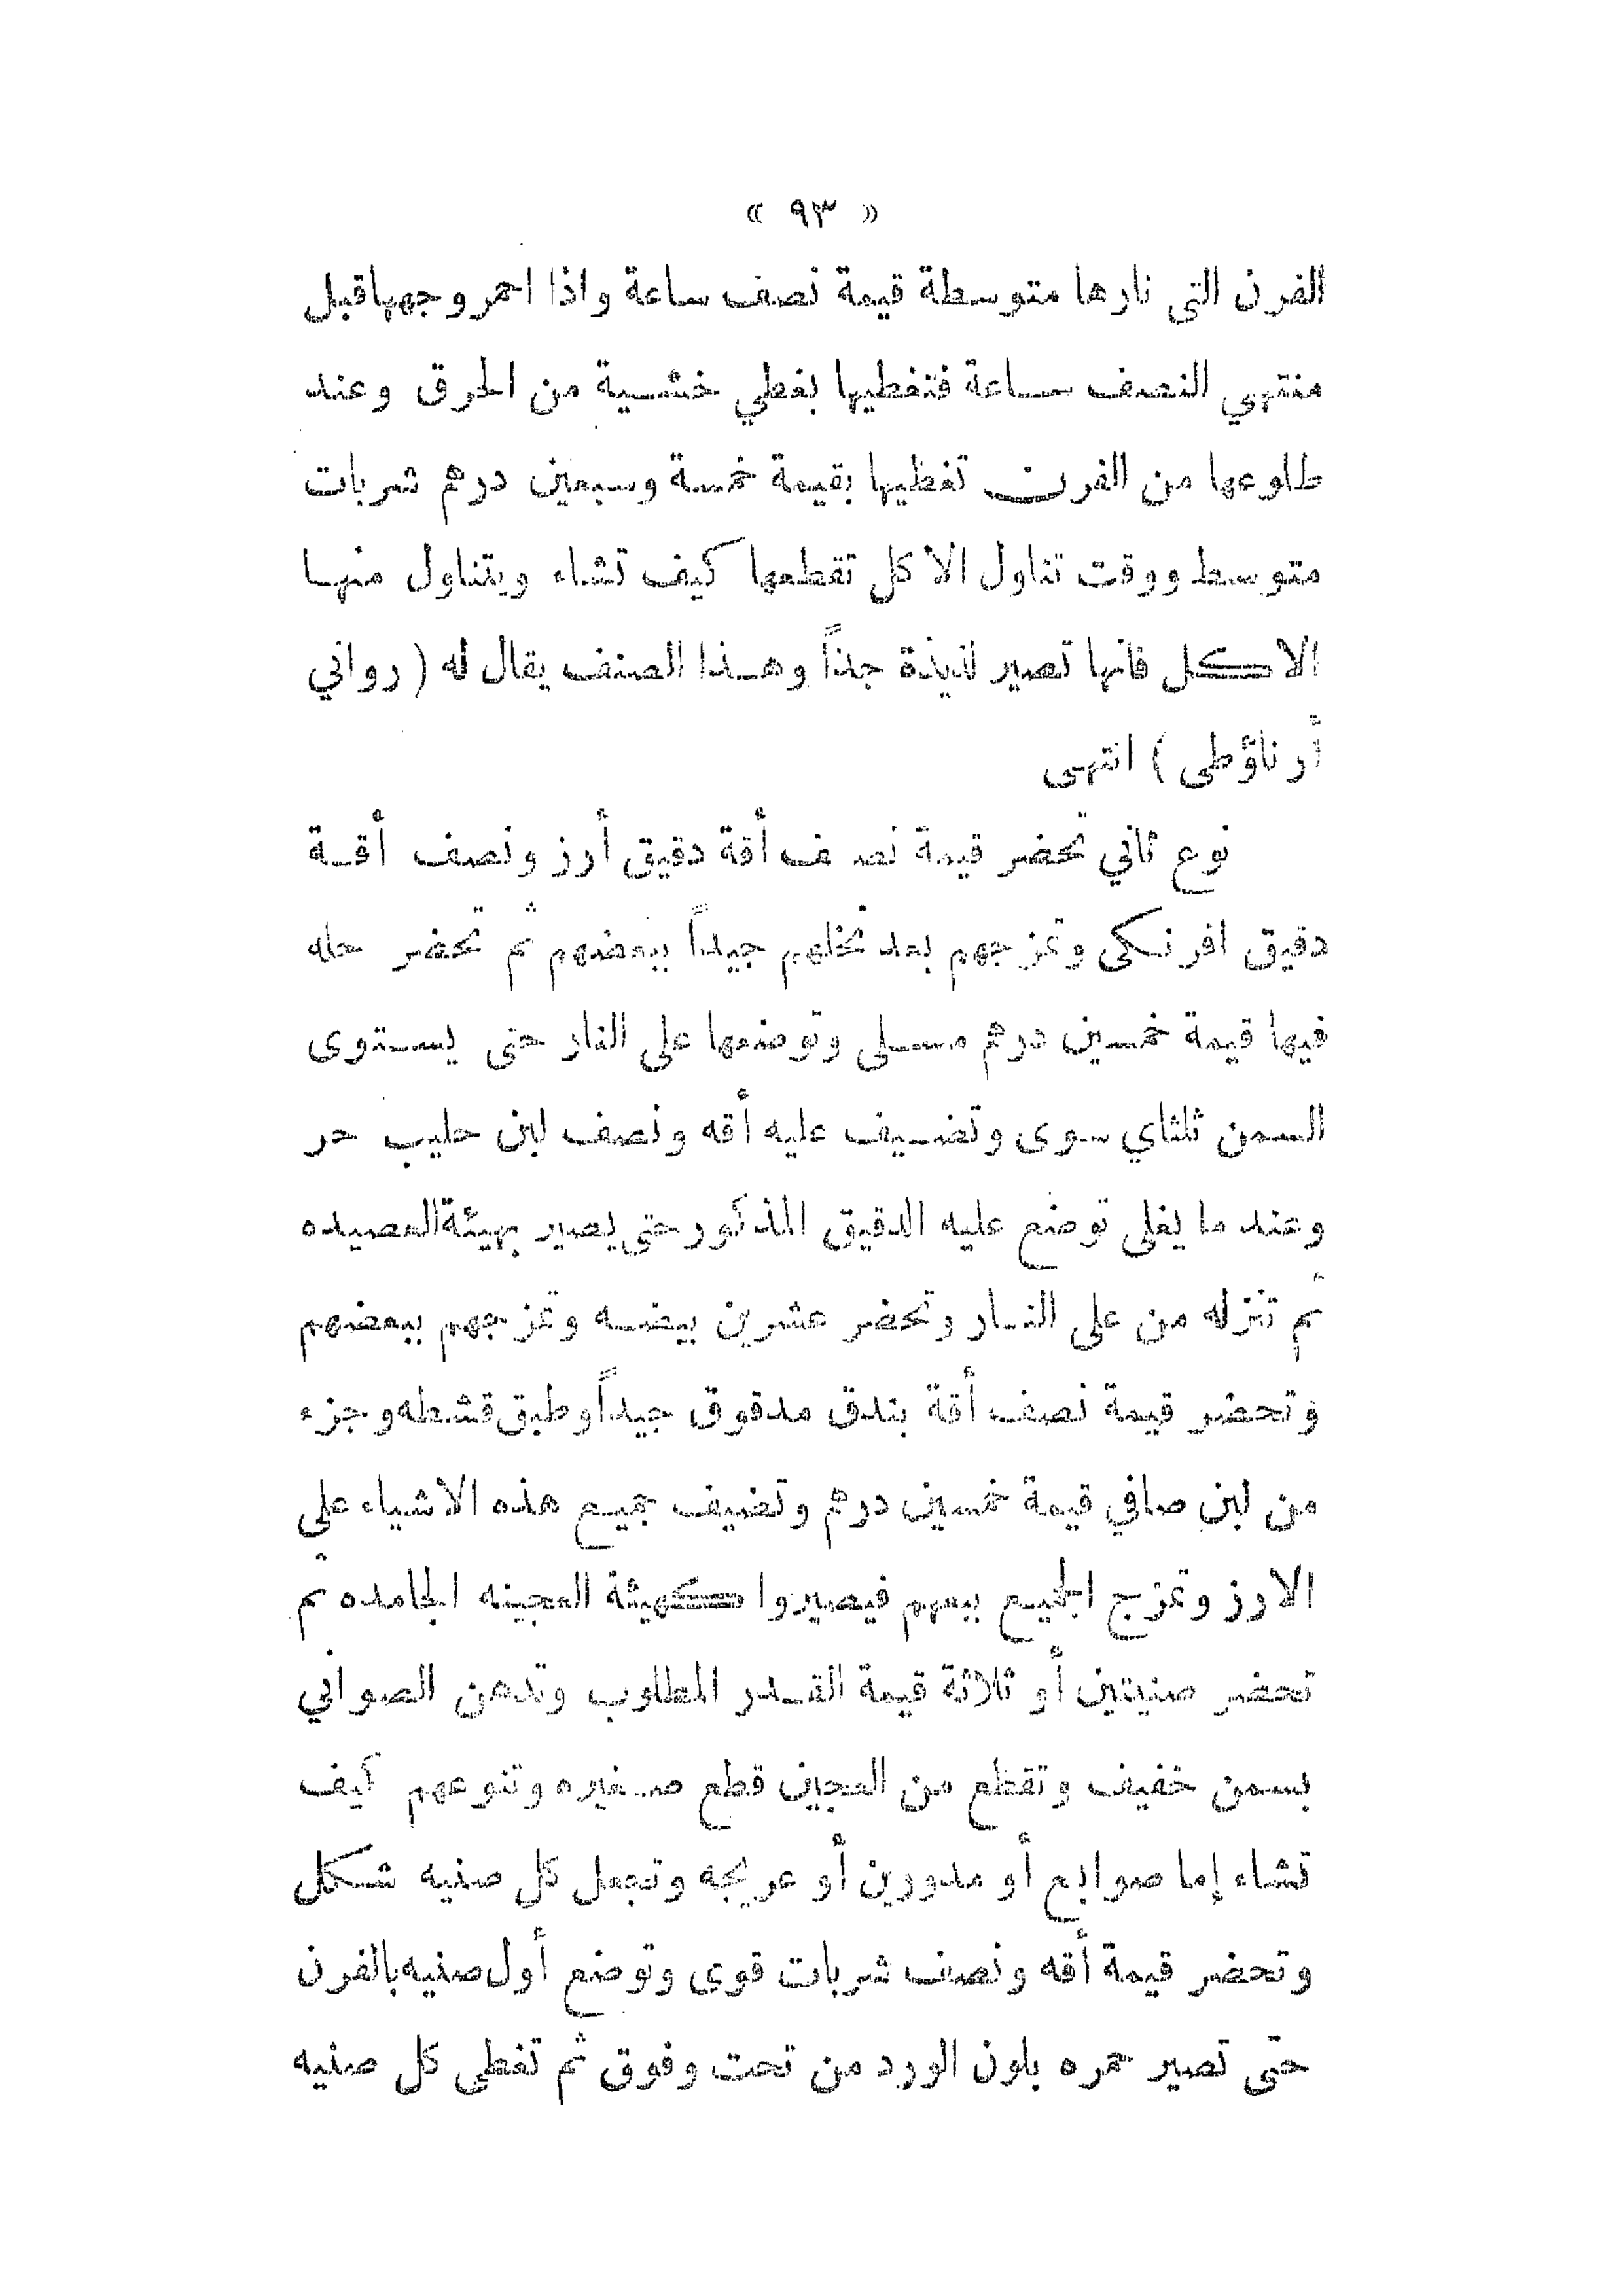 « ٩٣ »
الفرن التى نارها متوسطة قيمة نصف ساعة واذا احمر وجهها قبل
منتهي النصف ساعة فتغطيها بغطي خشية من الحرق وعند
طلوعها من الفرن تغطيها بقيمة خمسة وسبعين درهم شربات
متوسط ووقت تناول الاكل تقطعها كيف تشاء ويتناول منها
الاكل فانها تصير لذيذة جداً وهذا الصنف يقال له ( رواني
أرناؤطى ) انتهى
نوع ثاني تحضر قيمة نصف أقة دقيق أرز ونصف أقة
دقيق افرنكى وتمزجهم بعد نخلهم جيداً ببعضهم ثم تحضر حله
فيها قيمة خمسين درهم مسلى وتوضعها على النار حتى يستوى
السمن ثلثاي سوى وتضيف عليه أقه ونصف لبن حليب حر
وعند ما يغلى توضع عليه الدقيق المذكور حتى يصير بهيئة العصيده
ثم تنزله من على النار وتحضر عشرين بيضه وتمزجهم ببعضهم
وتحضر قيمة نصف أقة بندق مدقوق جيداً وطبق قشطه وجزء
من لبن صافي قيمة خمسين درهم وتضيف جميع هذه الاشياء على
الارز وتمزج الجميع ببعهم فيصيروا كهيئة العجينه الجامده ثم
تحضر صنيتين أو ثلاثة قيمة القدر المطلوب وتدهن الصواني
بسمن خفيف وتقطع من العجين قطع صغيره وتنوعهم كيف
تشاء إما صوابع أو مدورين أو عريجه وتجعل كل صنيه شكل
وتحضر قيمة أقه ونصف شربات قوى وتوضع أول صنيه بالفرن
حتى تصير حمره بلون الورد من تحت وفوق ثم تغطي كل صنيه